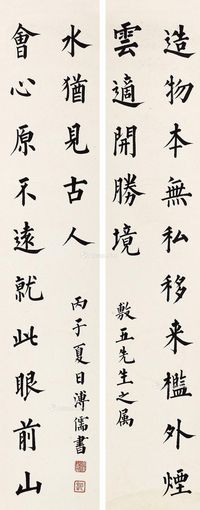 造物本無私移来檻外煙
雲適開勝境
敷五先生之属
會心原不遠就此眼前山
水猶見古人
丙子夏日溥儒書